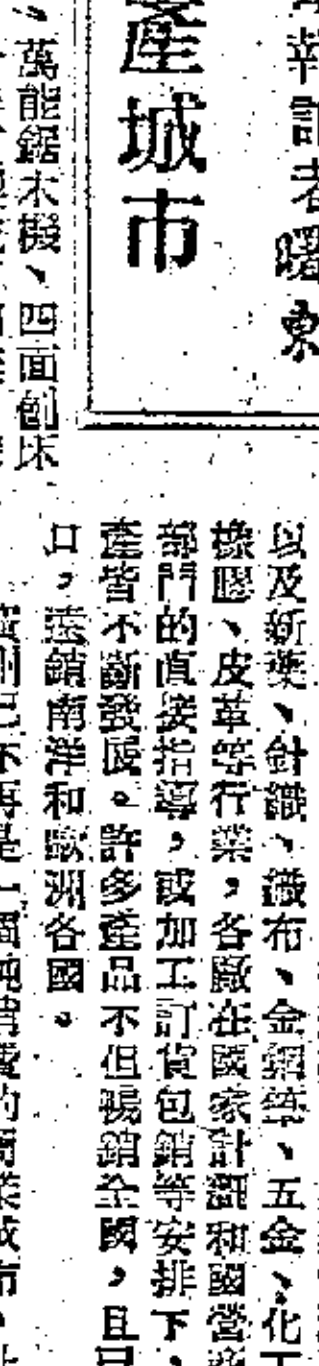 報記者曙東
產城市
萬能鋸木機、四面刨床
以及新藥、針織、織布、金鋼筆、五金、化工
橡膠、皮革等行業，各廠在國家計劃和國營
部門的直接指導，或加工訂貨包銷等安排下，
產皆不斷發展。許多產品不但暢銷全國，且
口，遠銷南洋和歐洲各國。
已不再是一個純消費的商業城市，